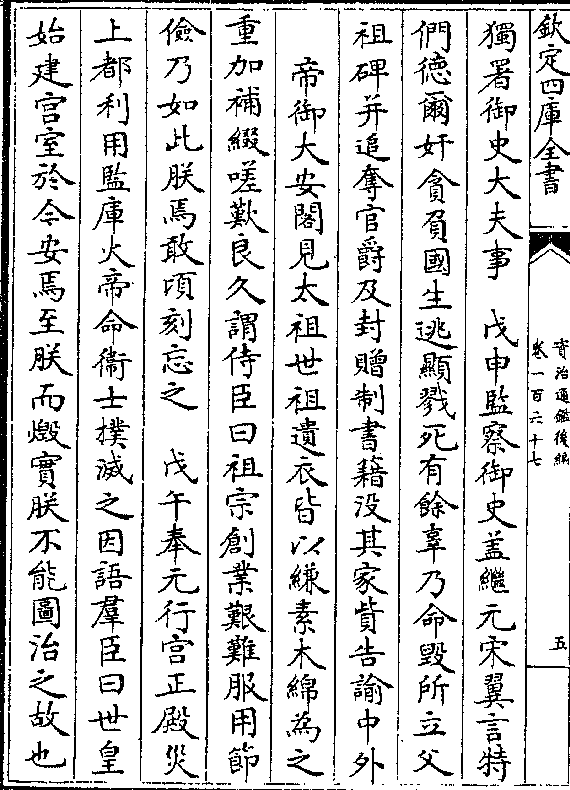 欽定四庫全書
資治通鑑後編
卷一百六十七
五
獨署御史大夫事　戊申監察御史蓋繼元宋翼言特
們德爾奸貪負國生逃顯戮死有餘辜乃命毀所立父
祖碑并追奪官爵及封贈制書籍没其家貲告諭中外
帝御大安閣見太祖世祖遺衣皆以縑素木綿為之
重加補綴嗟歎良久謂侍臣曰祖宗創業艱難服用節
儉乃如此朕焉敢頃刻忘之　戊午奉元行宫正殿災
上都利用監庫火帝命衞士撲滅之因語羣臣曰世皇
始建宫室於今安焉至朕而燬實朕不能圖治之故也